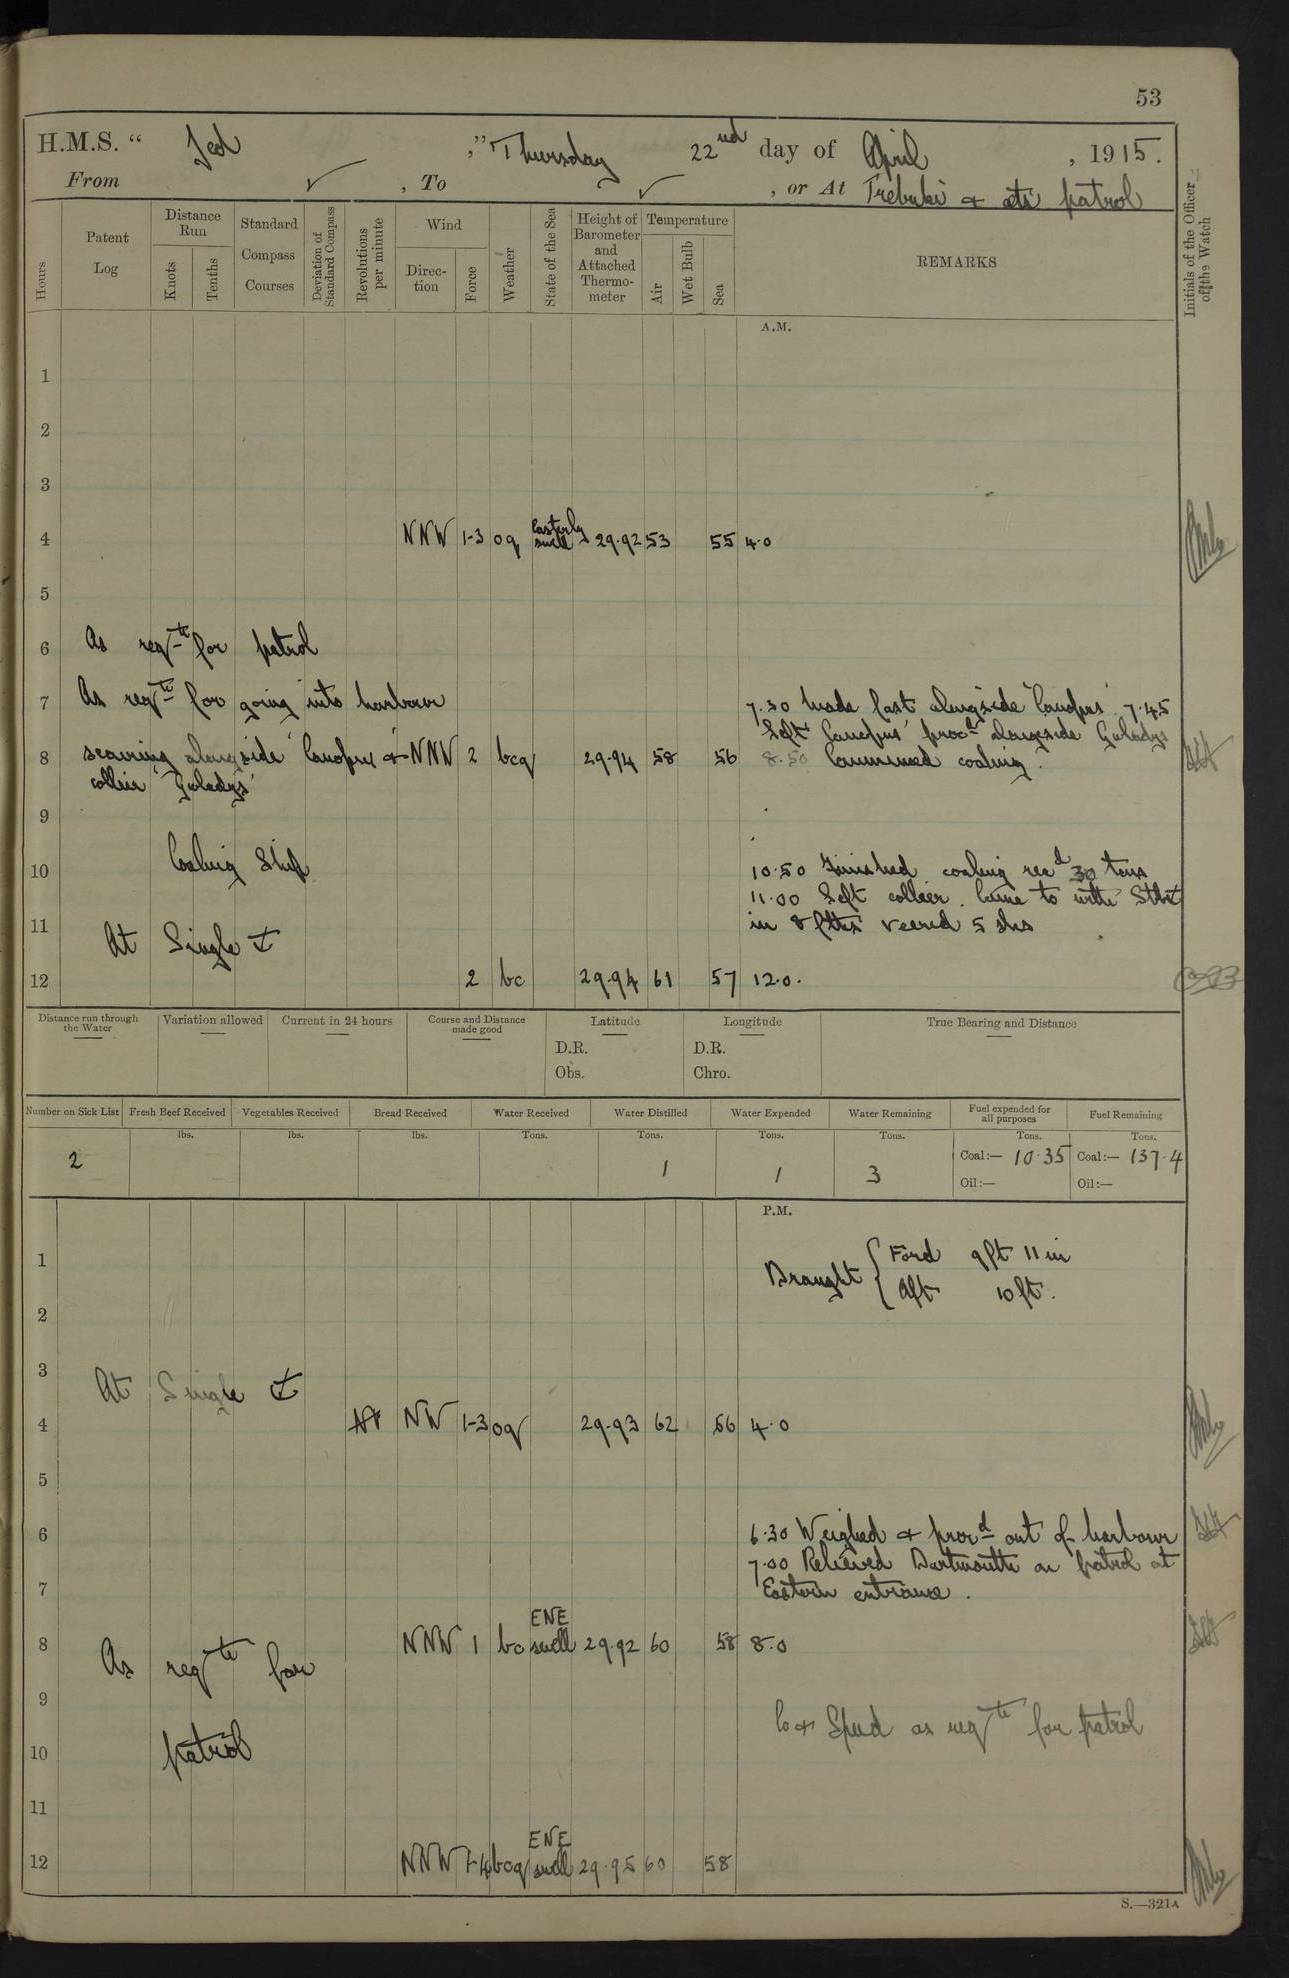 53
H.M.S. “ Jed ,” Thursday 22nd day of April , 1915.
From ✓ , To ✓ , or At Trebuki & at patrol
Hours
Patent Log
Distance Run
Knots
Tenths
Standard Compass Courses
Deviation of Standard Compass
Revolutions per minute
Wind
Direction
Force
Weather
State of the Sea
Height of Barometer and Attached Thermometer
Temperature
Air
Wet Bulb
Sea
REMARKS
Initials of the Officer of the Watch
A.M.
1
2
3
4 NNW 1-3 oq Easterly swell 29.92 53 55 4.0
5
6 As reqte for patrol
7 As reqte for going into harbour
7.30 Made fast alongside 'Canopus' 7.45
Left 'Canopus' procd alongside Guladys
8 securing alongside 'Canopus' & NNW 2 bcq 29.94 58 56 8.50 Commenced coaling.
collier 'Guladys'
9
Coaling Ship
10 10.50 Finished coaling recd 30 tons
11.00 Left collier. Came to with Stbd
11 in 8 fths veered 5 shs
At Single ⚓
12 2 bc 29.94 61 57 12.0.
Distance run through the Water
Variation allowed
Current in 24 hours
Course and Distance made good
Latitude
D.R.
Obs.
Longitude
D.R.
Chro.
True Bearing and Distance
Number on Sick List
Fresh Beef Received
Vegetables Received
Bread Received
Water Received
Water Distilled
Water Expended
Water Remaining
Fuel expended for all purposes
Fuel Remaining
lbs. lbs. lbs. Tons. Tons. Tons. Tons. Tons. Tons.
2 1 1 3 Coal:— 10.35 Coal:— 137.4
Oil:— Oil:—
P.M.
1 Draught { Ford 9ft 11in
Aft 10ft.
2
3
At Single ⚓
4 NW 1-3 oq 29.93 62 56 4.0
5
6 6.30 Weighed & procd out of harbour
7.00 Relieved Dartmouth on patrol at
7 Eastern entrance.
8 NNW 1 bc ENE swell 29.92 60 58 8.0
As reqte for
9
Co & Speed as reqte for patrol
10 patrol
11
12 NNW 1-4 bcq ENE swell 29.95 60 58
S.—321A